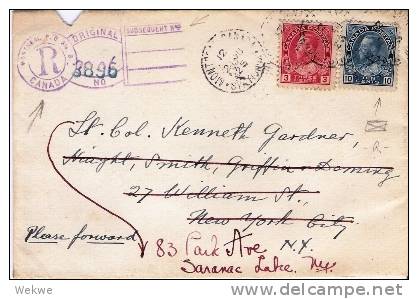 MONTREAL, P.Q.
R
CANADA
ORIGINAL
NO
3896
SUBSEQUENT NOS
MONTREAL
CANADA
CANADA POSTAGE
3 CENTS 3
CANADA POSTAGE
10 CENTS 10
R-
Lt. Col. Kenneth Gardner,
Haight, Smith, Griffin & Deming
27 William St.,
New York City
Please forward
83 Park Ave N.Y.
Saranac Lake, NY.
Wekwe
delcampe.net